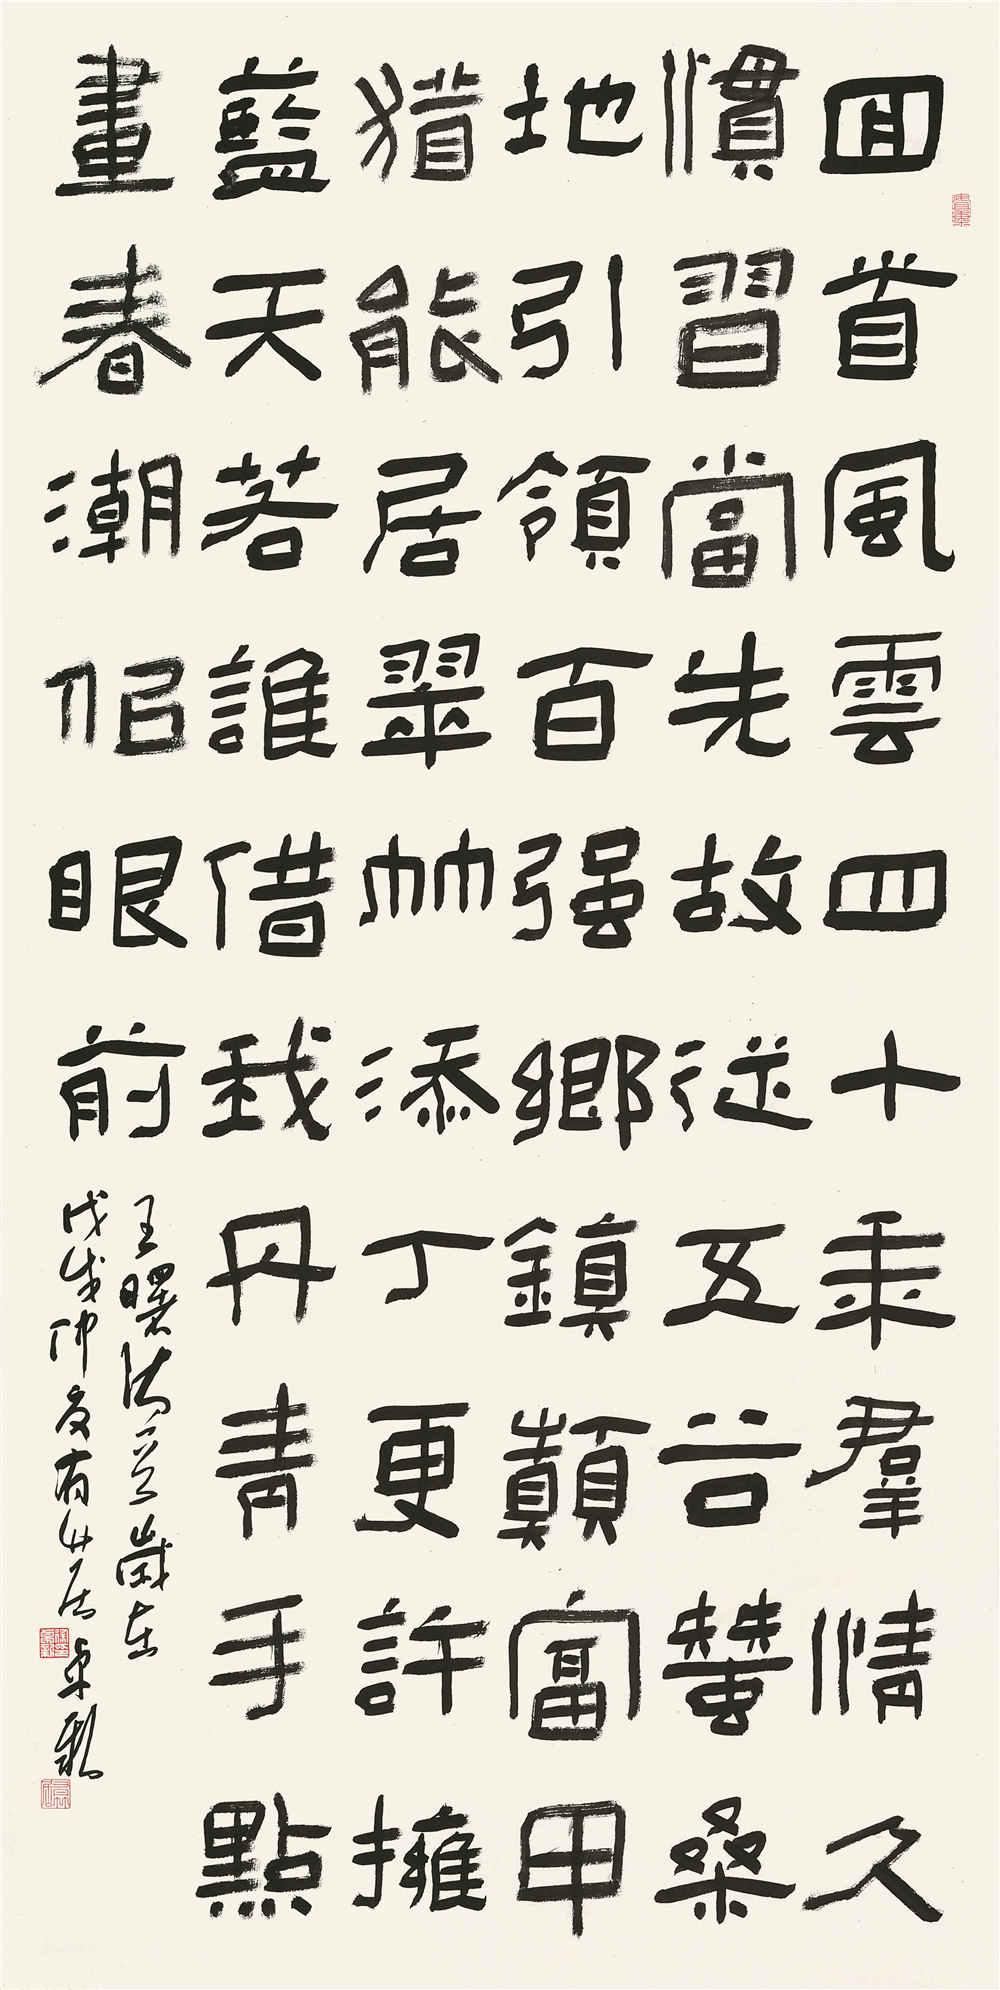 回首風雲四十秊羣情久
慣習當先故從五谷蝅桑
地引領百强鄉鎮顛富甲
猶能居翠竹添丁更許擁
藍天若誰借我丹青手點
畫春潮佀眼前
王曙 歲在
戊戌仲夏有竹居